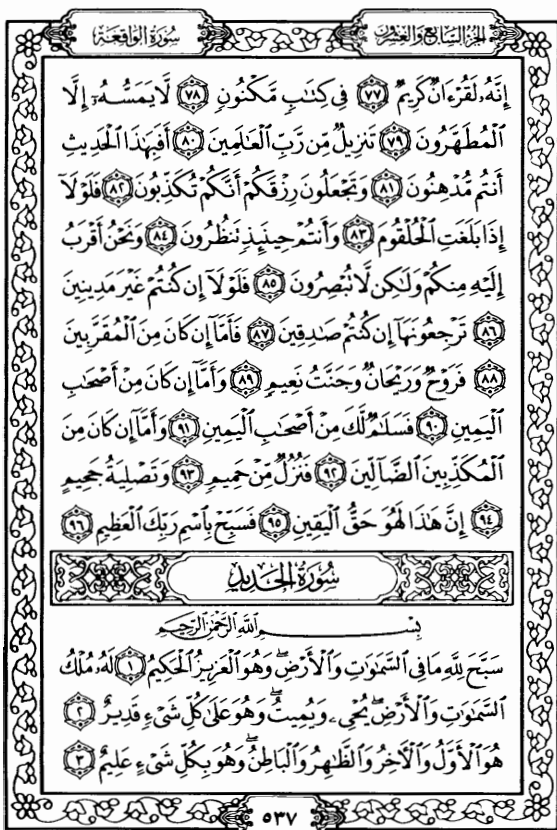 الجزء السابع والعشرون سورة الواقعة
إِنَّهُۥ لَقُرْءَانٌ كَرِيمٌ ۝٧٧ فِى كِتَٰبٍ مَّكْنُونٍ ۝٧٨ لَّا يَمَسُّهُۥٓ إِلَّا
ٱلْمُطَهَّرُونَ ۝٧٩ تَنزِيلٌ مِّن رَّبِّ ٱلْعَٰلَمِينَ ۝٨٠ أَفَبِهَٰذَا ٱلْحَدِيثِ
أَنتُم مُّدْهِنُونَ ۝٨١ وَتَجْعَلُونَ رِزْقَكُمْ أَنَّكُمْ تُكَذِّبُونَ ۝٨٢ فَلَوْلَآ
إِذَا بَلَغَتِ ٱلْحُلْقُومَ ۝٨٣ وَأَنتُمْ حِينَئِذٍ تَنظُرُونَ ۝٨٤ وَنَحْنُ أَقْرَبُ
إِلَيْهِ مِنكُمْ وَلَٰكِن لَّا تُبْصِرُونَ ۝٨٥ فَلَوْلَآ إِن كُنتُمْ غَيْرَ مَدِينِينَ
۝٨٦ تَرْجِعُونَهَآ إِن كُنتُمْ صَٰدِقِينَ ۝٨٧ فَأَمَّآ إِن كَانَ مِنَ ٱلْمُقَرَّبِينَ
۝٨٨ فَرَوْحٌ وَرَيْحَانٌ وَجَنَّتُ نَعِيمٍ ۝٨٩ وَأَمَّآ إِن كَانَ مِنْ أَصْحَٰبِ
ٱلْيَمِينِ ۝٩٠ فَسَلَٰمٌ لَّكَ مِنْ أَصْحَٰبِ ٱلْيَمِينِ ۝٩١ وَأَمَّآ إِن كَانَ مِنَ
ٱلْمُكَذِّبِينَ ٱلضَّآلِّينَ ۝٩٢ فَنُزُلٌ مِّنْ حَمِيمٍ ۝٩٣ وَتَصْلِيَةُ جَحِيمٍ
۝٩٤ إِنَّ هَٰذَا لَهُوَ حَقُّ ٱلْيَقِينِ ۝٩٥ فَسَبِّحْ بِٱسْمِ رَبِّكَ ٱلْعَظِيمِ ۝٩٦
سُورَةُ الحَدِيدِ
بِسْمِ ٱللَّهِ ٱلرَّحْمَٰنِ ٱلرَّحِيمِ
سَبَّحَ لِلَّهِ مَا فِى ٱلسَّمَٰوَٰتِ وَٱلْأَرْضِ ۖ وَهُوَ ٱلْعَزِيزُ ٱلْحَكِيمُ ۝١ لَهُۥ مُلْكُ
ٱلسَّمَٰوَٰتِ وَٱلْأَرْضِ ۖ يُحْىِۦ وَيُمِيتُ ۖ وَهُوَ عَلَىٰ كُلِّ شَىْءٍ قَدِيرٌ ۝٢
هُوَ ٱلْأَوَّلُ وَٱلْءَاخِرُ وَٱلظَّٰهِرُ وَٱلْبَاطِنُ ۖ وَهُوَ بِكُلِّ شَىْءٍ عَلِيمٌ ۝٣
٥٣٧